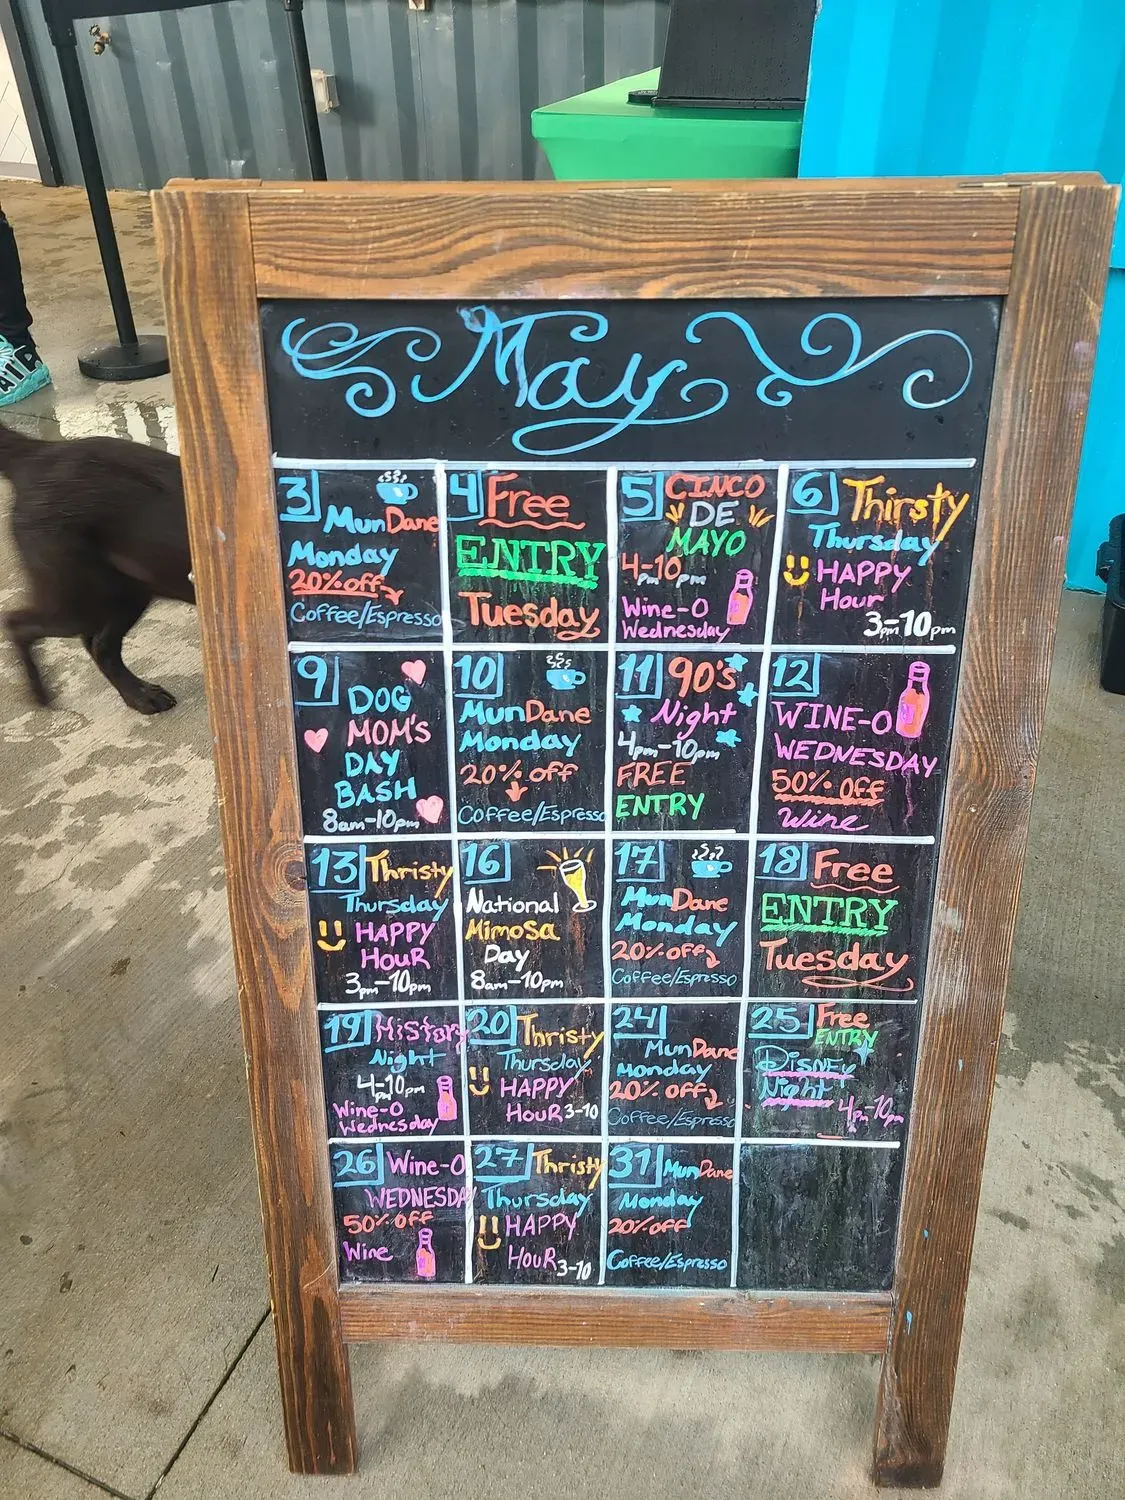 May
3
MunDane
Monday
20% off
Coffee/Espresso
4 Free
ENTRY
Tuesday
5 CINCO
DE
MAYO
4-10
pm pm
Wine-O
Wednesday
6 Thirsty
Thursday
HAPPY
Hour
3pm-10pm
9
DOG
MOM'S
DAY
BASH
8am-10pm
10
MunDane
Monday
20% off
Coffee/Espresso
11 90'S
Night
4pm-10pm
FREE
ENTRY
12
WINE-O
WEDNESDAY
50% Off
Wine
13 Thristy
Thursday
HAPPY
HOUR
3pm-10pm
16
National
Mimosa
Day
8am-10pm
17
MunDane
Monday
20% off
Coffee/Espresso
18 Free
ENTRY
Tuesday
19 HiStory
Night
4-10pm
pm
Wine-O
Wednesday
20 Thristy
Thursday
HAPPY
HOUR 3-10
24
MunDane
Monday
20% off
Coffee/Espresso
25 Free
ENTRY
DiSNEY
Night
4pm-10pm
26 Wine-O
WEDNESDA
50% off
Wine
27 Thristy
Thursday
HAPPY
HOUR 3-10
31 MunDane
Monday
20% off
Coffee/Espresso